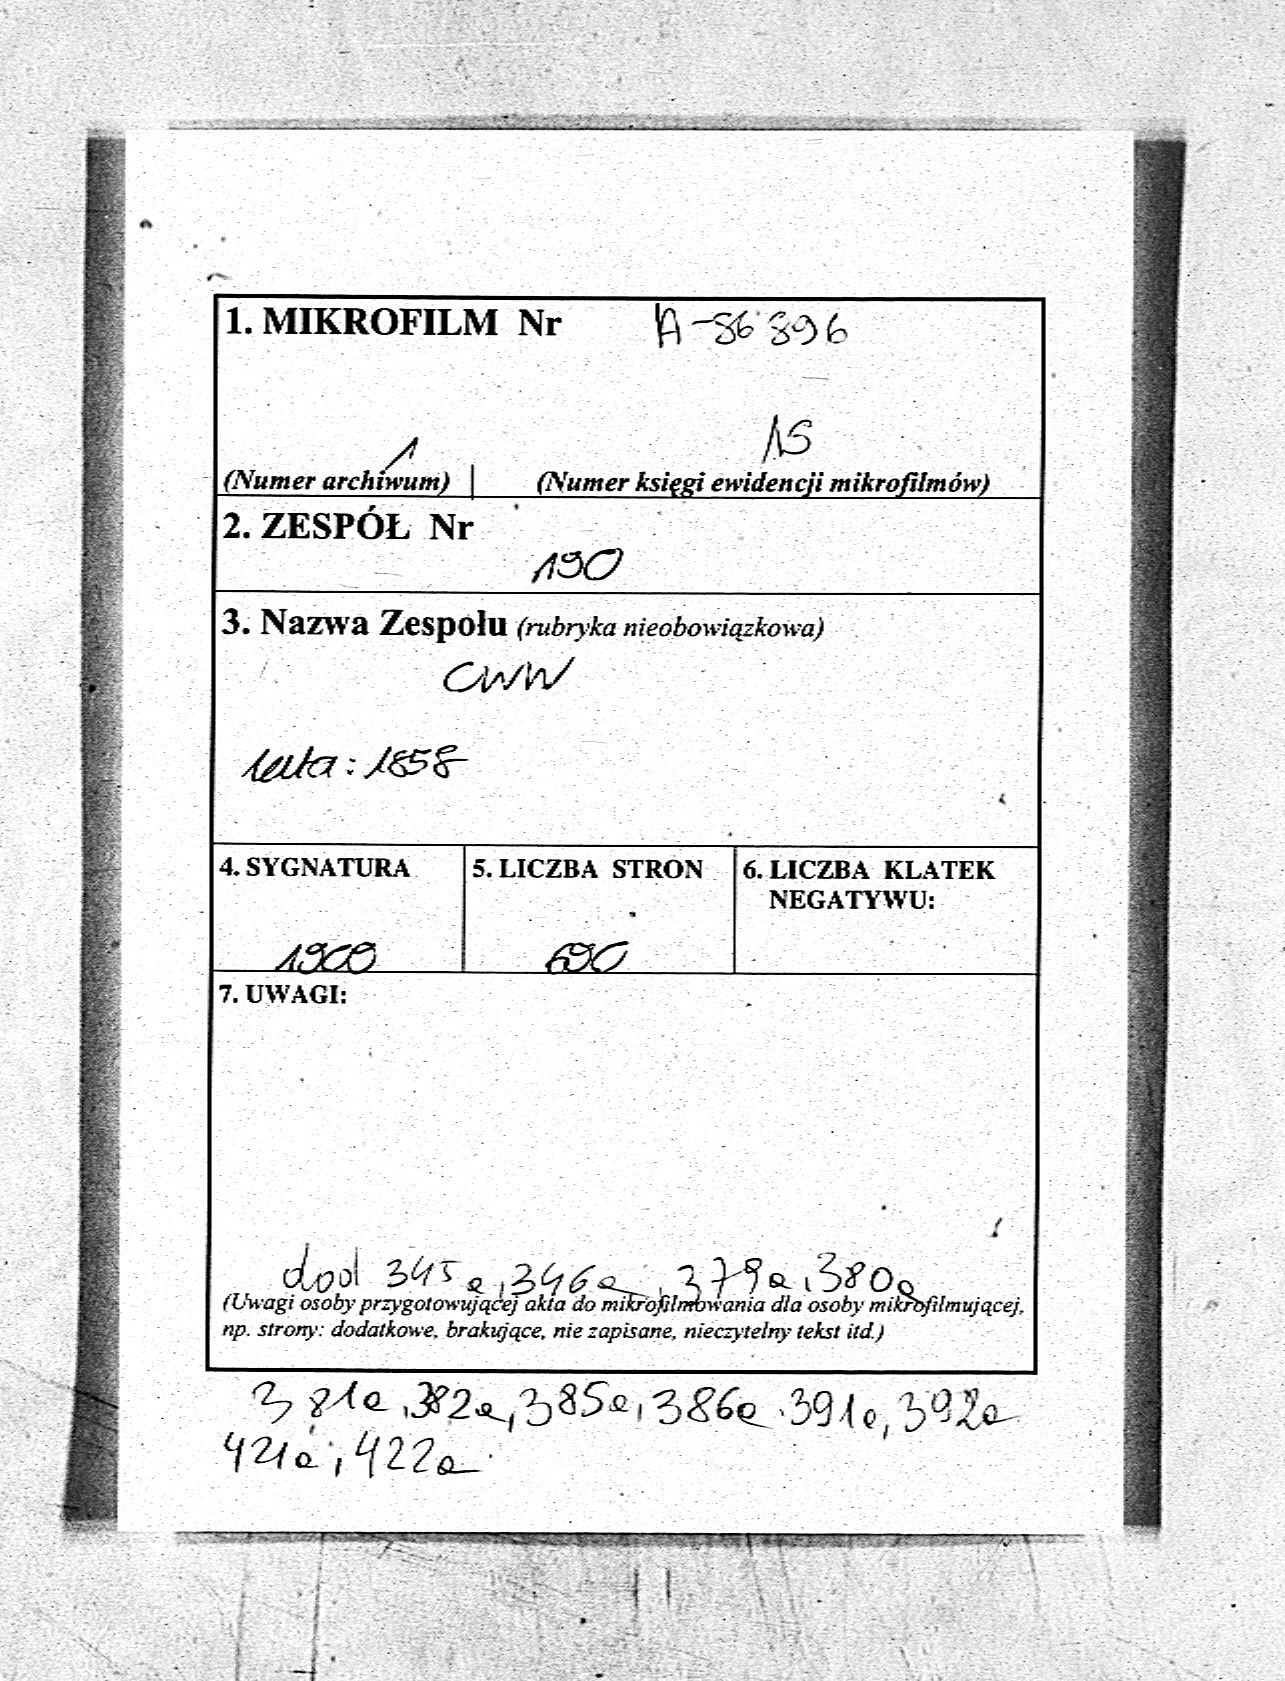 1. MIKROFILM Nr A-86896
1 15
(Numer archiwum) | (Numer księgi ewidencji mikrofilmów)
2. ZESPÓŁ Nr
190
3. Nazwa Zespołu (rubryka nieobowiązkowa)
CWW
lata: 1858
4. SYGNATURA
1900
5. LICZBA STRON
690
6. LICZBA KLATEK
NEGATYWU:
7. UWAGI:
dod 345a, 346a, 379a, 380a
(Uwagi osoby przygotowującej akta do mikrofilmowania dla osoby mikrofilmującej,
np. strony: dodatkowe, brakujące, nie zapisane, nieczytelny tekst itd.)
381a, 382a, 385a, 386a. 391a, 392a
421a, 422a